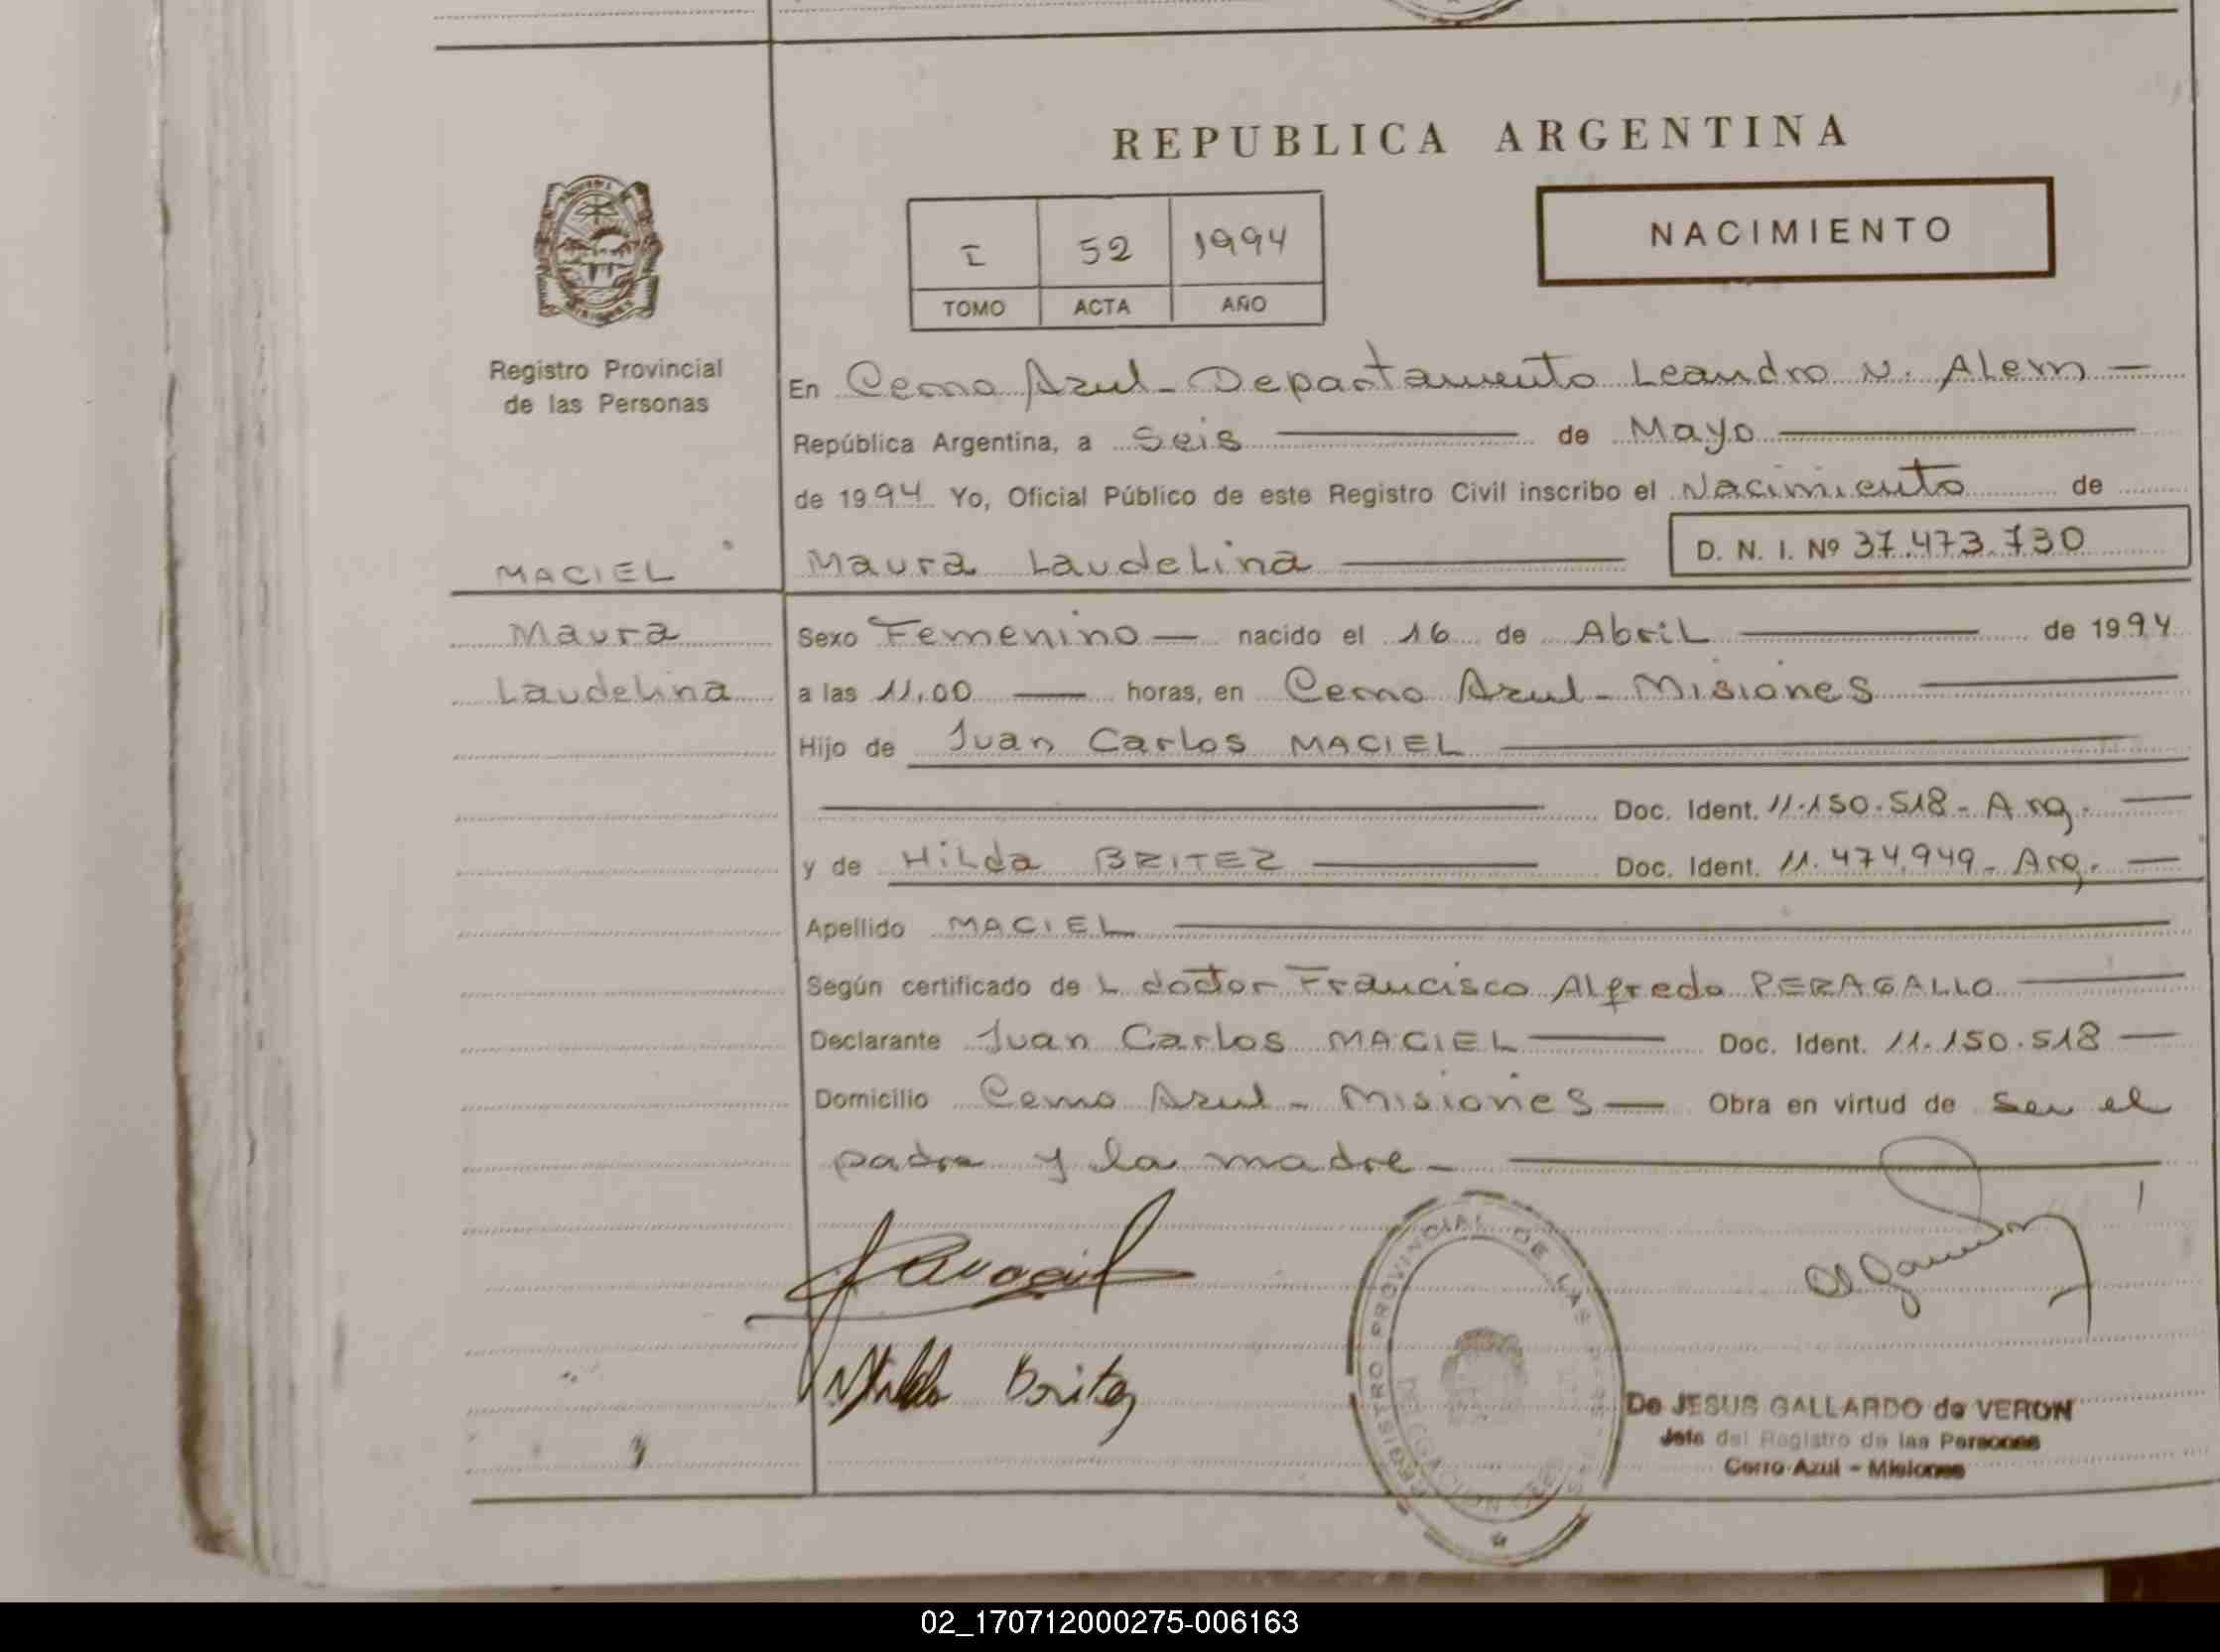 REPUBLICA ARGENTINA
I 52 1994
TOMO ACTA AÑO
NACIMIENTO
Registro Provincial
de las Personas
En Cerro Azul - Departamento Leandro N. Alem -
República Argentina, a Seis de Mayo
de 1994 Yo, Oficial Público de este Registro Civil inscribo el Nacimiento de
MACIEL Maura Laudelina D. N. I. Nº 37.473.730
Maura Sexo Femenino - nacido el 16 de Abril de 1994
Laudelina a las 11,00 horas, en Cerro Azul - Misiones
Hijo de Juan Carlos MACIEL
Doc. Ident. 11.150.518 - Arg.
y de Hilda BRITEZ Doc. Ident. 11.474.949 - Arg.
Apellido MACIEL
Según certificado de L doctor Francisco Alfredo PERAGALLO
Declarante Juan Carlos MACIEL Doc. Ident. 11.150.518
Domicilio Cerro Azul - Misiones - Obra en virtud de ser el
padre y la madre -
Hilda Britez
REGISTRO PROVINCIAL DE LAS
De JESUS GALLARDO de VERON
Jefe del Registro de las Personas
Cerro Azul - Misiones
02_170712000275-006163